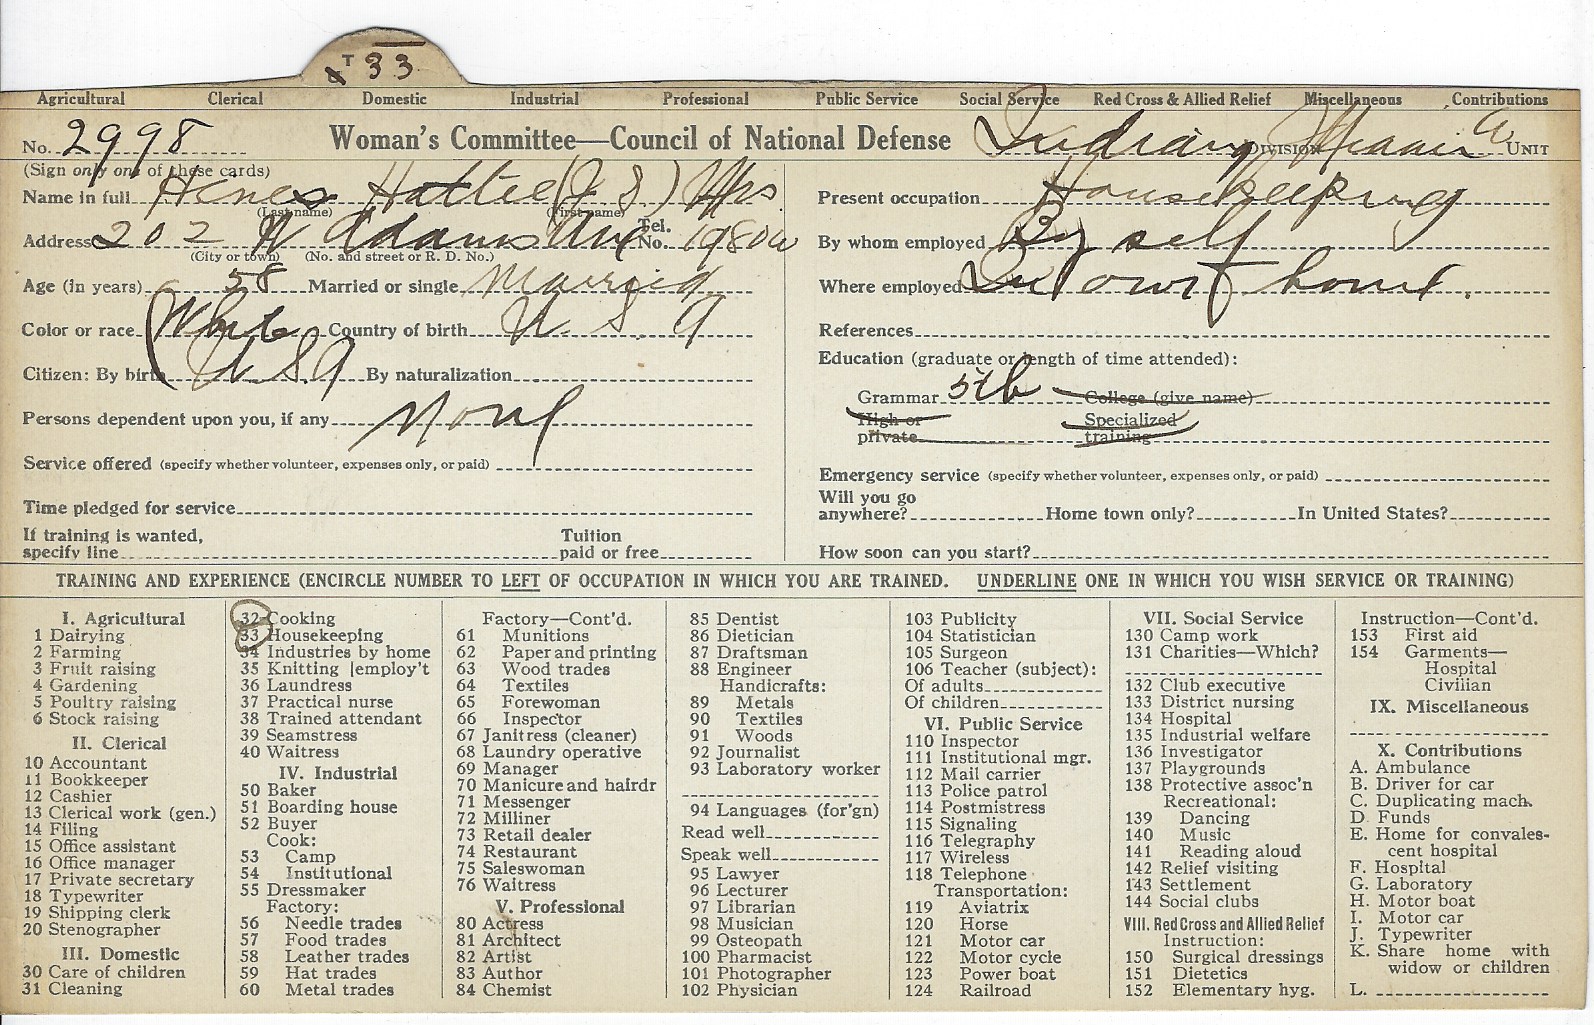 T 33
Agricultural Clerical Domestic Industrial Professional Public Service Social Service Red Cross & Allied Relief Miscellaneous Contributions
No. 2998 Woman's Committee—Council of National Defense Indiana DIVISION Miami UNIT
(Sign only one of these cards)
Name in full Hines Hattie (J S) Mrs
(Last name) (First name)
Address 202 N Adams Tel. No. 1980w
(City or town) (No. and street or R. D. No.)
Age (in years) 58 Married or single Married
Color or race White Country of birth U S A
Citizen: By birth U S A By naturalization
Persons dependent upon you, if any None
Service offered (specify whether volunteer, expenses only, or paid)
Time pledged for service
If training is wanted, specify line Tuition paid or free
Present occupation Housekeeping
By whom employed By self
Where employed In own home.
References
Education (graduate or length of time attended):
Grammar 5th College (give name)
High or private Specialized training
Emergency service (specify whether volunteer, expenses only, or paid)
Will you go anywhere? Home town only? In United States?
How soon can you start?
TRAINING AND EXPERIENCE (ENCIRCLE NUMBER TO LEFT OF OCCUPATION IN WHICH YOU ARE TRAINED. UNDERLINE ONE IN WHICH YOU WISH SERVICE OR TRAINING)
I. Agricultural
1 Dairying
2 Farming
3 Fruit raising
4 Gardening
5 Poultry raising
6 Stock raising
II. Clerical
10 Accountant
11 Bookkeeper
12 Cashier
13 Clerical work (gen.)
14 Filing
15 Office assistant
16 Office manager
17 Private secretary
18 Typewriter
19 Shipping clerk
20 Stenographer
III. Domestic
30 Care of children
31 Cleaning
32 Cooking
33 Housekeeping
34 Industries by home
35 Knitting [employ't
36 Laundress
37 Practical nurse
38 Trained attendant
39 Seamstress
40 Waitress
IV. Industrial
50 Baker
51 Boarding house
52 Buyer
Cook:
53 Camp
54 Institutional
55 Dressmaker
Factory:
56 Needle trades
57 Food trades
58 Leather trades
59 Hat trades
60 Metal trades
Factory—Cont'd.
61 Munitions
62 Paper and printing
63 Wood trades
64 Textiles
65 Forewoman
66 Inspector
67 Janitress (cleaner)
68 Laundry operative
69 Manager
70 Manicure and hairdr
71 Messenger
72 Milliner
73 Retail dealer
74 Restaurant
75 Saleswoman
76 Waitress
V. Professional
80 Actress
81 Architect
82 Artist
83 Author
84 Chemist
85 Dentist
86 Dietician
87 Draftsman
88 Engineer
Handicrafts:
89 Metals
90 Textiles
91 Woods
92 Journalist
93 Laboratory worker
94 Languages (for'gn)
Read well
Speak well
95 Lawyer
96 Lecturer
97 Librarian
98 Musician
99 Osteopath
100 Pharmacist
101 Photographer
102 Physician
103 Publicity
104 Statistician
105 Surgeon
106 Teacher (subject):
Of adults
Of children
VI. Public Service
110 Inspector
111 Institutional mgr.
112 Mail carrier
113 Police patrol
114 Postmistress
115 Signaling
116 Telegraphy
117 Wireless
118 Telephone
Transportation:
119 Aviatrix
120 Horse
121 Motor car
122 Motor cycle
123 Power boat
124 Railroad
VII. Social Service
130 Camp work
131 Charities—Which?
132 Club executive
133 District nursing
134 Hospital
135 Industrial welfare
136 Investigator
137 Playgrounds
138 Protective assoc'n
Recreational:
139 Dancing
140 Music
141 Reading aloud
142 Relief visiting
143 Settlement
144 Social clubs
VIII. Red Cross and Allied Relief
Instruction:
150 Surgical dressings
151 Dietetics
152 Elementary hyg.
Instruction—Cont'd.
153 First aid
154 Garments—
Hospital
Civilian
IX. Miscellaneous
X. Contributions
A. Ambulance
B. Driver for car
C. Duplicating mach.
D. Funds
E. Home for convales-
cent hospital
F. Hospital
G. Laboratory
H. Motor boat
I. Motor car
J. Typewriter
K. Share home with
widow or children
L.